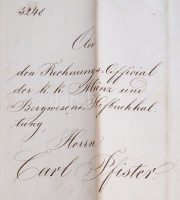 5240
An
den Rechnungs-Official
der k. k. Münz und
Bergwesens Hofbuchhal-
tung,
Herrn
Carl Pfister